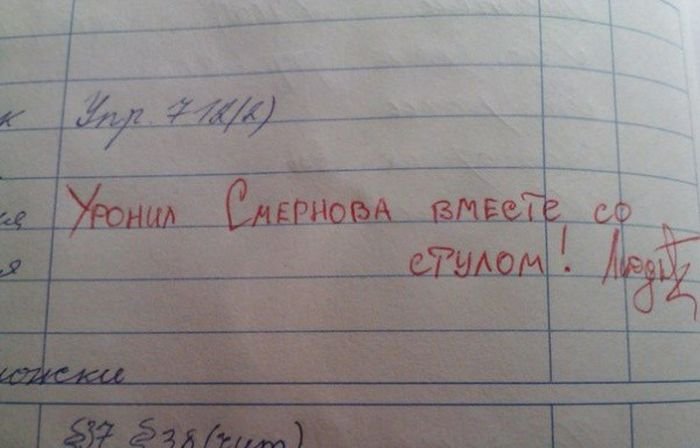 к Упр. 712(2)
Уронил Смернова вместе со
я стулом!
ложски
§37 §38(чит)